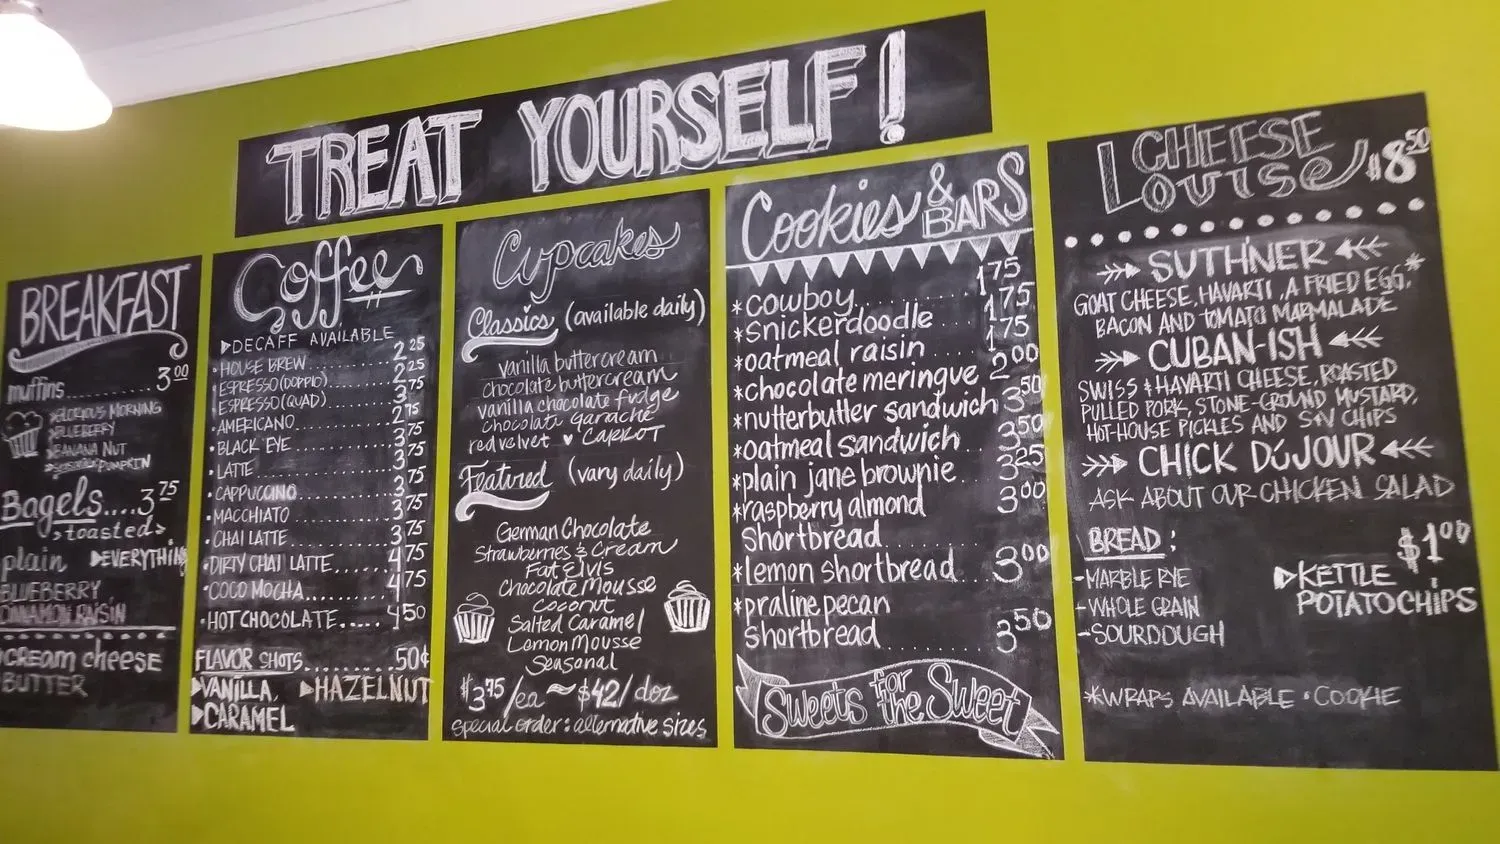 TREAT YOURSELF!
BREAKFAST
muffins......3.00
GLORIOUS MORNING
BLUEBERRY
BANANA NUT
PUMPKIN
Bagels....3.75
toasted
plain ▷EVERYTHING
BLUEBERRY
CINNAMON RAISIN
CREAM cheese
BUTTER
Coffee
▷DECAFF AVAILABLE
•HOUSE BREW......2.25
•ESPRESSO(DOPPIO)......2.25
•ESPRESSO(QUAD)......3.75
•AMERICANO......2.75
•BLACK EYE......3.75
•LATTE......3.75
•CAPPUCCINO......3.75
•MACCHIATO......3.75
•CHAI LATTE......3.75
•DIRTY CHAI LATTE......4.75
•COCO MOCHA......4.75
•HOT CHOCOLATE.....4.50
FLAVOR SHOTS........50¢
▷VANILLA ▷HAZELNUT
▷CARAMEL
Cupcakes
Classics (available daily)
vanilla buttercream
chocolate buttercream
vanilla chocolate fudge
chocolate garache
red velvet ♥ CARROT
Featured (vary daily)
German Chocolate
Strawberries & Cream
Fat Elvis
Chocolate Mousse
Coconut
Salted Caramel
Lemon Mousse
Seasonal
$3.75/ea ~ $42/doz
special order: alternative sizes
Cookies & BARS
*cowboy......1.75
*snickerdoodle....1.75
*oatmeal raisin....1.75
*chocolate meringue 2.00
*nutterbutter sandwich 3.50
*oatmeal sandwich....3.50
*plain jane brownie...3.25
*raspberry almond 3.00
shortbread
*lemon shortbread...3.00
*praline pecan
shortbread......3.50
Sweets for the Sweet
CHEESE LOUISE $8.50
SUTHNER
GOAT CHEESE, HAVARTI, A FRIED EGG,*
BACON AND TOMATO MARMALADE
CUBAN-ISH
SWISS & HAVARTI CHEESE, ROASTED
PULLED PORK, STONE-GROUND MUSTARD,
HOT-HOUSE PICKLES AND S+V CHIPS
CHICK DÚJOUR
ASK ABOUT OUR CHICKEN SALAD
BREAD:
-MARBLE RYE
-WHOLE GRAIN
-SOURDOUGH
$1.00
▷KETTLE
POTATO CHIPS
*WRAPS AVAILABLE • COOKIE